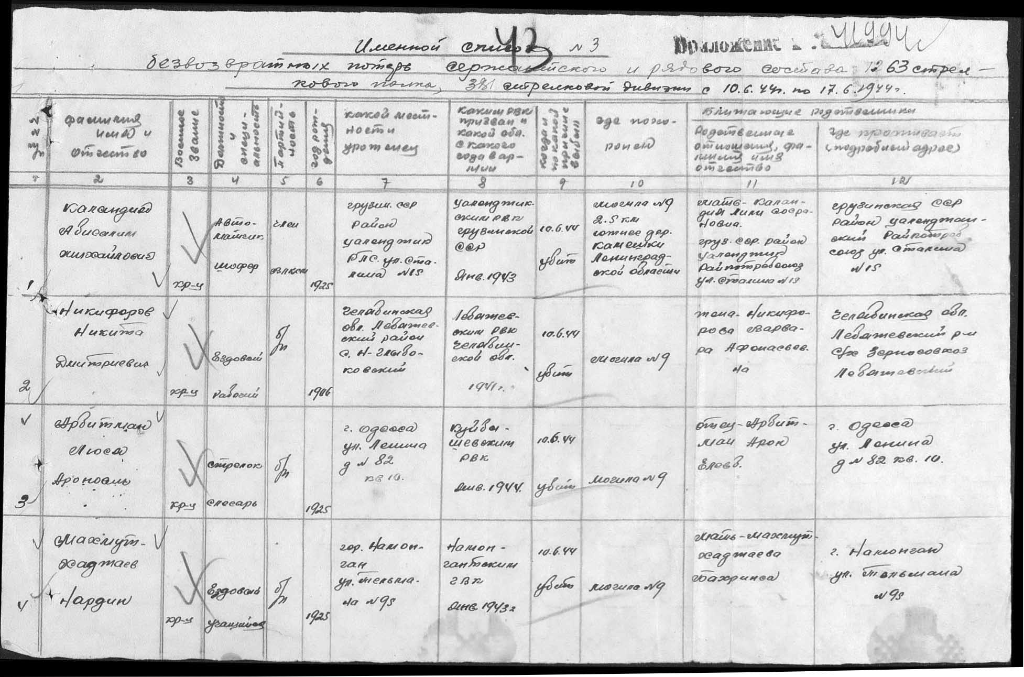 43
Именной список № 3
Приложение к 41994с
безвозвратных потерь сержантского и рядового состава 1263 стрел-
кового полка, 381 стрелковой дивизии с 10.6.44г. по 17.6.1944г.
№№ п/п
фамилия имя и отчество
Военное звание
Должность и специальность
Партийность
год рождения
какой местности уроженец
Каким РВК призван и какой обл. с какого года в армии
когда и по какой причине выбыл
где похоронен
Ближайшие родственники
Родственные отношения, фамилия имя отчество
где проживает (подробный адрес)
1 2 3 4 5 6 7 8 9 10 11 12
1
Абисалим
Михайлович
кр-ц
Авто-
матчик
шофер
член
влксм
1925
грузин. сср
район
цаленджик
РПС ул. Ста-
лина №15
цаленджик-
ским РВК
грузинской
ССР
Янв. 1943
10.6.44
убит
могила №9
2.5 км
южнее дер.
Каменки
Ленинград-
ской области
груз. сср. район
цаленджик
Райпотребсоюз
ул. Сталина №15
грузинская ССР
район цаленджик-
ский Райпотреб
союз ул. Сталина
№15
2
Никифоров
Никита
Дмитриевич
кр-ц
Ездовой
рабочий
б/п
1906
Челябинская
обл. Лебяжев-
ский район
Лебяжев-
ским РВК
Челябин-
ской обл.
1941г.
10.6.44
убит
могила №9
жена- Никифо-
рова Варва-
ра Афонасьев-
на
Челябинская обл.
Лебяжевский р-н
с/х Зерносовхоз
Лебяжевский
3
Арбитман
Люса
кр-ц
стрелок
слесарь
б/п
1925
г. Одесса
ул. Ленина
д № 82
кв. 10.
Куйбы-
шевским
РВК
1944.
10.6.44
убит
могила №9
отец-Арбит-
ман Арон
г. Одесса
ул. Ленина
д № 82 кв. 10.
4
Махмут-
хаджаев
Нардин
кр-ц
учащийся
б/п
1925
гор. Наман-
ган
ул. Тельма-
на №95
Наман-
ганским
ГВК
Янв. 1943г
10.6.44
убит
могила №9
мать-Махмут-
хаджаева
г. Наманган
ул. Тельмана
№95